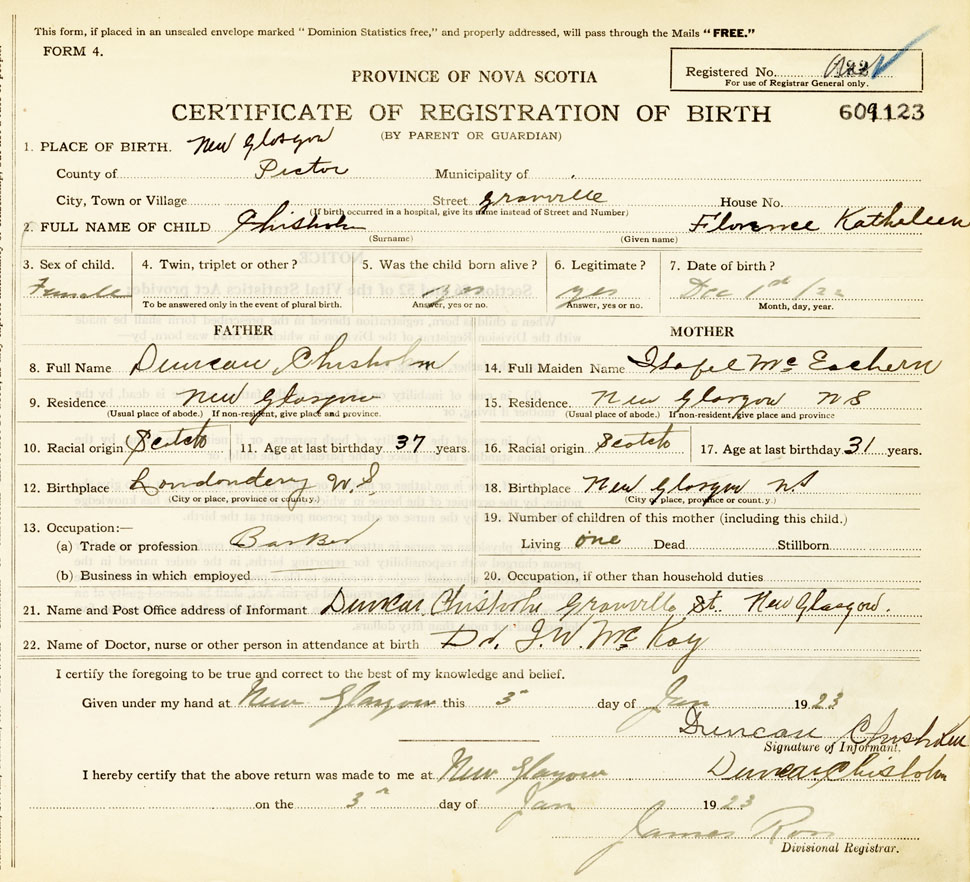 This form, if placed in an unsealed envelope marked "Dominion Statistics free," and properly addressed, will pass through the Mails "FREE."
FORM 4.
PROVINCE OF NOVA SCOTIA
Registered No.
For use of Registrar General only.
CERTIFICATE OF REGISTRATION OF BIRTH
(BY PARENT OR GUARDIAN)
1. PLACE OF BIRTH. New Glasgow
County of Pictou Municipality of
City, Town or Village Street Granville House No.
(If birth occurred in a hospital, give its name instead of Street and Number)
2. FULL NAME OF CHILD Chisholm Florence Katheleen
(Surname) (Given name)
3. Sex of child. 4. Twin, triplet or other? 5. Was the child born alive? 6. Legitimate? 7. Date of birth?
Female yes yes Dec 1st /22
To be answered only in the event of plural birth. Answer, yes or no. Answer, yes or no. Month, day, year.
FATHER MOTHER
8. Full Name Duncan Chisholm 14. Full Maiden Name Isabel McEachern
9. Residence New Glasgow 15. Residence New Glasgow NS
(Usual place of abode.) If non-resident, give place and province. (Usual place of abode.) If non-resident, give place and province
10. Racial origin Scotch 11. Age at last birthday 37 years. 16. Racial origin Scotch 17. Age at last birthday 31 years.
12. Birthplace Londondery N.S. 18. Birthplace New Glasgow NS
(City or place, province or county.) (City or place, province or county.)
13. Occupation:— 19. Number of children of this mother (including this child.)
(a) Trade or profession Barber Living one Dead Stillborn
(b) Business in which employed 20. Occupation, if other than household duties
21. Name and Post Office address of Informant Duncan Chisholm Granville St. New Glasgow.
22. Name of Doctor, nurse or other person in attendance at birth Dr. J. W. McKay
I certify the foregoing to be true and correct to the best of my knowledge and belief.
Given under my hand at New Glasgow this 3 day of Jan 1923
Duncan Chisholm
Signature of Informant.
I hereby certify that the above return was made to me at New Glasgow Duncan Chisholm
on the 3 day of Jan 1923
James Ross
Divisional Registrar.